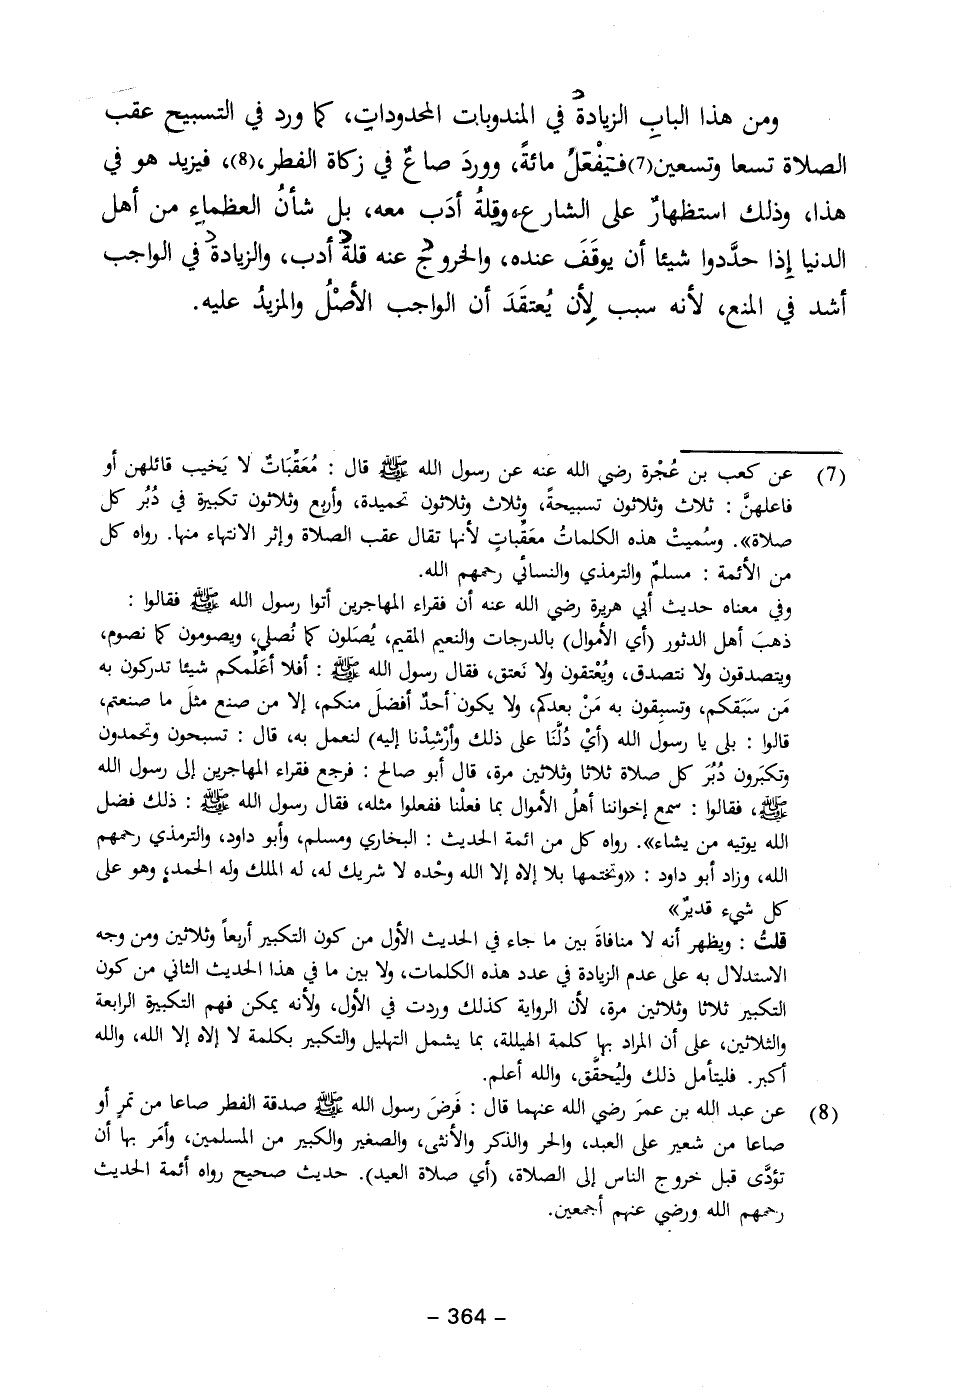 ومن هذا البابِ الزيادةُ في المندوبات المحدوداتِ، كما ورد في التسبيح عقب
الصلاة تسعا وتسعين(7)فيَفْعَلُ مائةً، ووردَ صاعٌ في زكاة الفطر،(8)، فيزيد هو في
هذا، وذلك استظهارٌ على الشارع، وقِلةُ أدَب معه، بل شأنُ العظماءِ من أهل
الدنيا إِذا حدَّدوا شيئا أن يوقَفَ عنده، والخروجُ عنه قلةُ أدب، والزيادةُ في الواجب
أشد في المنع، لأنه سبب لِأن يُعتقَدَ أن الواجب الأصْلُ والمزيدُ عليه.
(7) عن كعب بن عُجْرة رضي الله عنه عن رسول الله ﷺ قال : مُعَقِّبَاتٌ لا يَخيب قائلهن أو
فاعلهنَّ : ثلاث وثلاثون تسبيحةً، وثلاث وثلاثون تحميدة، وأربع وثلاثون تكبيرة في دُبُر كل
صلاة». وسُميتْ هذه الكلماتُ معَقِّباتٍ لأنها تقال عقب الصلاة وإثر الانتهاء منها. رواه كل
من الأئمة : مسلمٌ والترمذي والنسائي رحمهم الله.
وفي معناه حديث أبي هريرة رضي الله عنه أن فقراء المهاجرين أتوا رسول الله ﷺ فقالوا :
ذهبَ أهل الدثور (أي الأموال) بالدرجات والنعيم المقيم، يُصَلون كما نُصلي، ويصومون كما نصوم،
ويتصدقون ولا نتصدق، ويُعْتقون ولا نَعتق، فقال رسول الله ﷺ : أفلا أعَلِّمكم شيئا تدركون به
مَن سَبَقكم، وتسبقون به مَنْ بعدكم، ولا يكون أحدٌ أفضلَ منكم، إلا من صنع مثلَ ما صنعتم،
قالوا : بلى يا رسول الله (أيْ دُلَّنَا على ذلك وأرْشِدْنا إليه) لنعمل به، قال : تسبحون وتحمدون
وتكبَرون دُبُرَ كل صلاة ثلاثا وثلاثين مرة، قال أبو صالح : فرجع فقراء المهاجرين إلى رسول الله
ﷺ، فقالوا : سمع إخواننا أهلُ الأموال بما فعلْنا ففعلوا مثله، فقال رسول الله ﷺ : ذلك فضل
الله يوتيه من يشاء». رواه كل من ائمة الحديث : البخاري ومسلم، وأبو داود، والترمذي رحمهم
الله، وزاد أبو داود : «وتختمها بلا إلاه إلا الله وحْده لا شريك له، له الملك وله الحمد، وهو على
كل شيء قديرٌ»
قلتُ : ويظهر أنه لا منافاةَ بين ما جاء في الحديث الأول من كون التكبير أربعاً وثلاثين ومن وجه
الاستدلال به على عدم الزيادة في عدد هذه الكلمات، ولا بين ما في هذا الحديث الثاني من كون
التكبير ثلاثا وثلاثين مرة، لأن الرواية كذلك وردت في الأول، ولأنه يمكن فهم التكبيرة الرابعة
والثلاثين، على أن المراد بها كلمة الهيللة، بما يشمل التهليل والتكبير بكلمة لا إلاه إلا الله، والله
أكبر. فليتأمل ذلك وليُحقَّق، والله أعلم.
(8) عن عبد الله بن عمرَ رضي الله عنهما قال : فَرضَ رسول الله ﷺ صدقة الفطر صاعا من تمرٍ أو
صاعا من شعير على العبد، والحر والذكر والأنثى، والصغير والكبير من المسلمين، وأمَر بها أن
تؤدَّى قبل خروج الناس إلى الصلاة، (أي صلاة العيد). حديث صحيح رواه أئمة الحديث
رحمهم الله ورضي عنهم أجمعين.
- 364 -